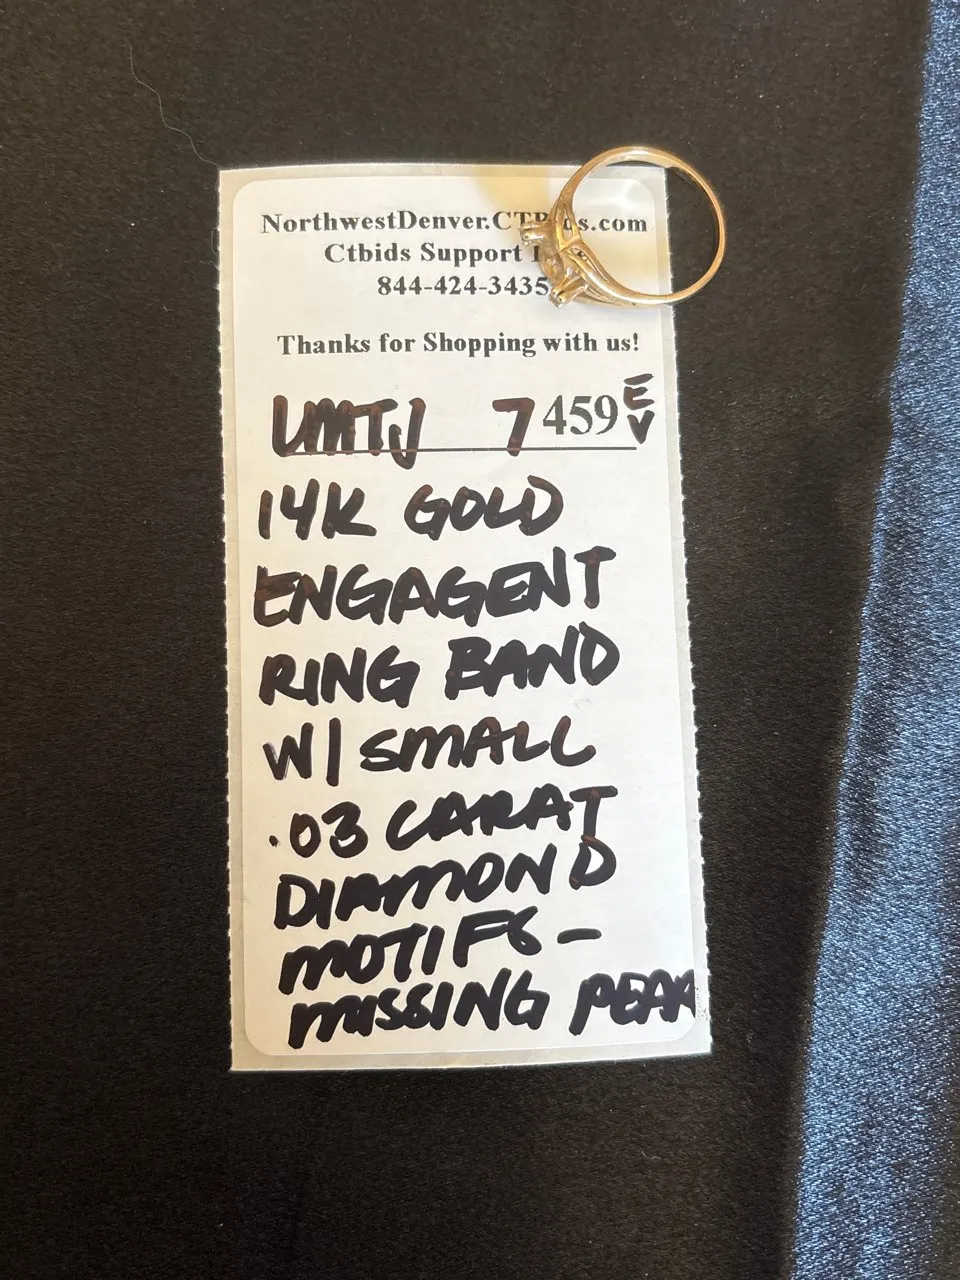 NorthwestDenver.CTBids.com
Ctbids Support
844-424-3435
Thanks for Shopping with us!
7459 EV
14K GOLD
ENGAGENT
RING BAND
W/ SMALL
.03 CARAT
DIAMOND
MOTIFS -
MISSING PEAR